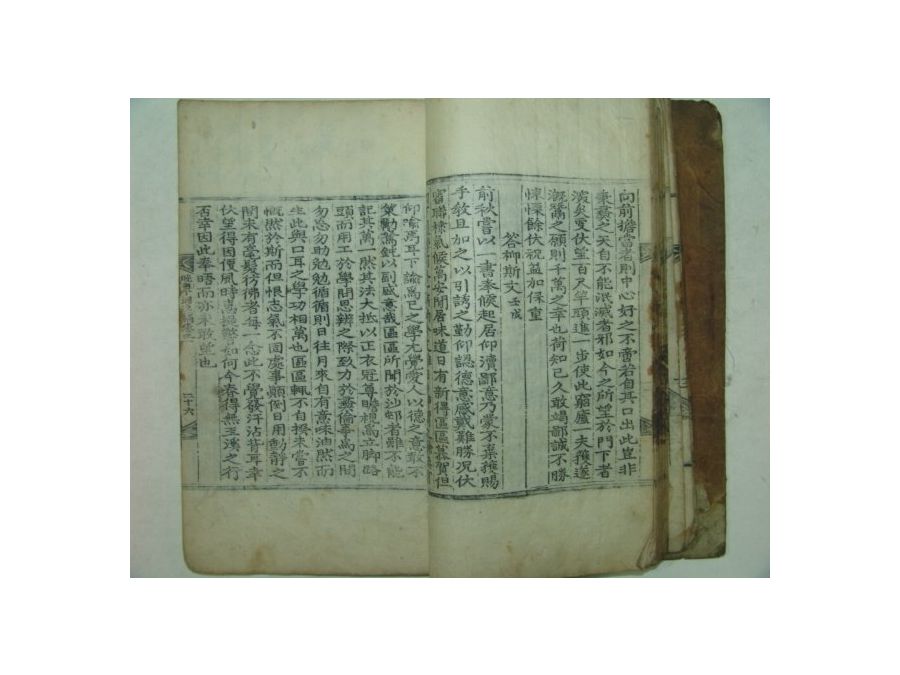 向前擔當者則中心好之不啻若自其口出此豈非
秉彛之天自不能泯滅者邪如今之所望於門下者
濱矣更伏望百尺竿頭進一步使此窮廬一夫獲遂
漑鬵之願則千萬之幸也荷知已久敢竭鄙誠不勝
悚慄餘伏祝益加保重
答柳斯文壬戌
前秋嘗以一書奉候起居仰瀆鄙意乃蒙不棄獲賜
手敎且加之以引誘之勤仰認德意感戴難勝況伏
審聯棣氣候萬安閒居味道日有新得區區慕賀但
仰喩焉耳下諭爲己之學尤覺愛人以德之意敢不
策勵駑鈍以副盛意哉區區所聞於沙邨者雖不能
記其萬一然其法大抵以正衣冠尊瞻視爲立脚路
頭而用工於學問思辨之際致力於彛倫事爲之間
勿忘勿助勉勉循循則日往月來自有意味油然而
生此與口耳之學功相萬也區區輒不自揆未嘗不
慨然於斯而但恨志氣不固處事顚倒日用動靜之
間未有毫髮彷彿者每一念此不覺發汗沾背耳幸
伏望得因便風時惠鐫警如何今春得無玉溪之行
否幸因此奉晤而亦未敢望也
二十六